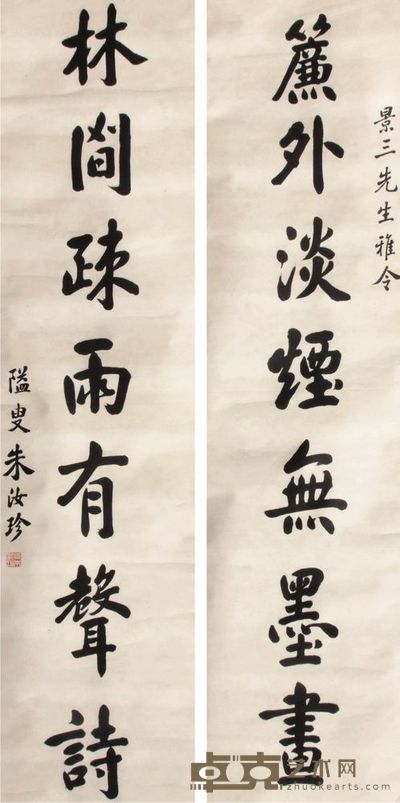 景三先生雅令
簾外淡煙無墨畫
林間疎雨有聲詩
隘叟朱汝珍
卓克艺术网
zhuokearts.com